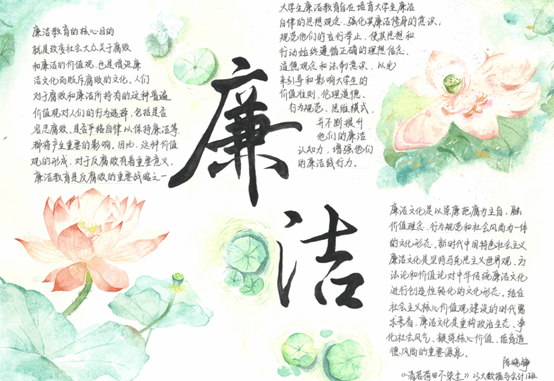 廉洁教育的核心目的
就是改变社会大众关于腐败
和廉洁的价值观，也是增进廉
洁文化而毁斥腐败的文化，人们
对于腐败和廉洁所持有的这种普遍
价值观对人们的行为选择，包括是否
容忍腐败、是否严格自律以保持廉洁等
都将产生重要的影响。因此，这种价值
观的形成，对于反腐败有着重要意义，
廉洁教育是反腐败的重要战略之一
大学生廉洁教育旨在培育大学生廉洁
自律的思想观念，强化其廉洁修身的意识，
规范他们的言行举止，使其思想和
行动始终遵循正确的理想信念、
道德观念和法制意识，从而
牵引导和影响大学生的
价值准则、伦理道德、
行为规范、思维模式，
并不断提升
他们的廉洁
认知力，增强他们
的廉洁践行力。
廉洁
廉洁文化是以崇廉拒腐为主旨，融
价值理念、行为规范和社会风尚为一体
的文化形态，新时代中国特色社会主义
廉洁文化是坚持马克思主义世界观、方
法论和价值论对中华传统廉洁文化
进行创造性转化的文化形态，结合
社会主义核心价值观建设的时代需
求来看，廉洁文化是重构政治生态、净
化社会风气、凝练核心价值、培育道
德风尚的重要源泉。
《清若荷田不染尘》 大数据与会计